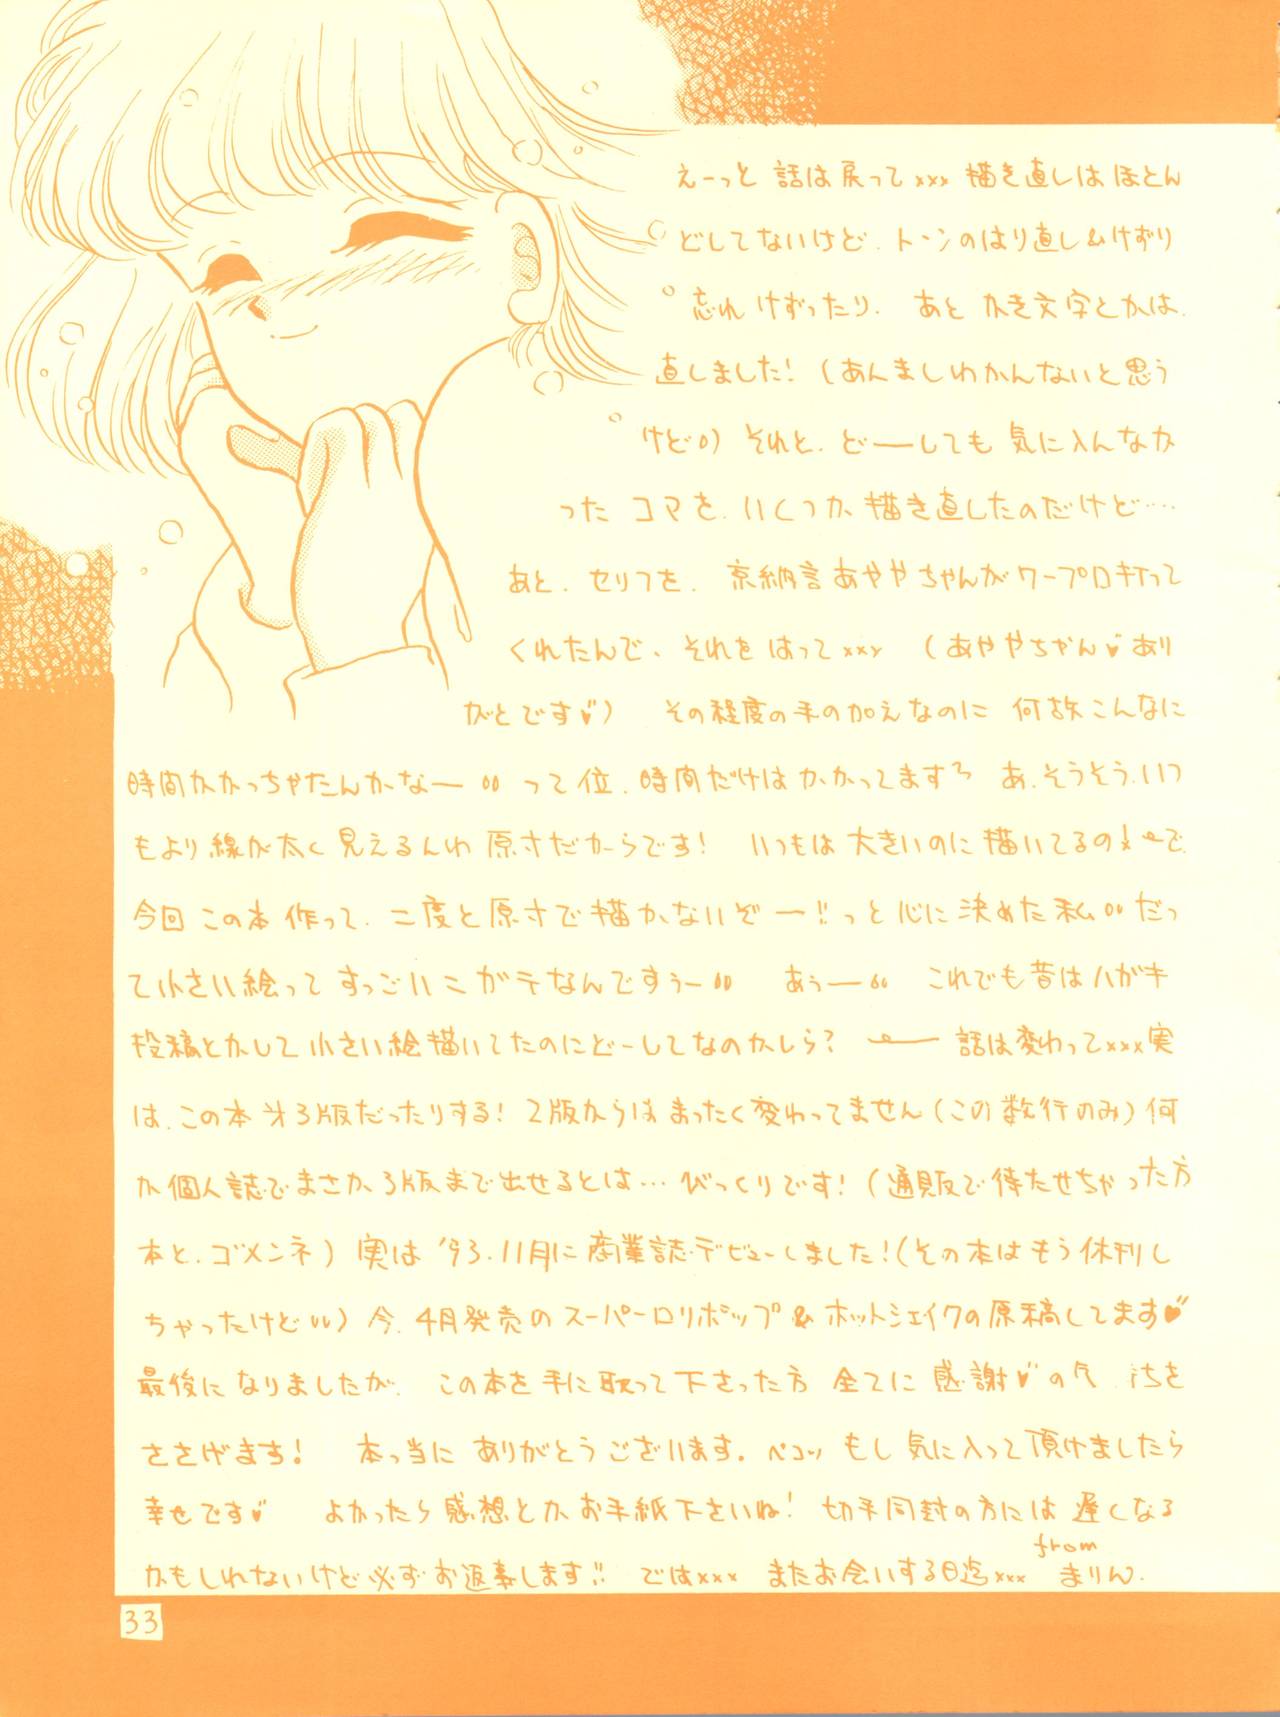 えーっと 話は戻って××× 描き直しは ほとん
どしてないけど、トーンのはり直し&けずり
忘れ けずったり、 あと かき文字とかは、
直しました！（あんましわかんないと思う
けど〃）それと、どーーしても 気に入んなか
った コマを、いくつか 描き直したのだけど…
あと、セリフを、 京納言あややちゃんがワープロ打って
くれたんで、それを はって××× （あややちゃん♥あり
がとです♥） その程度の手の加えなのに 何故こんなに
時間かかっちゃたんかなー〃って位、時間だけは かかってます あ、そうそう、いつ
もより 線が太く 見えるんわ 原寸だからです！ いつもは 大きいのに 描いてるので、
今回 この本 作って、二度と原寸で描かないぞー‼っと 心に 決めた 私〃だっ
て小さい絵って すっごいニガテなんですぅー〃 あぅー〃 これでも昔はハガキ
投稿とかして 小さい絵描いてたのにどーしてなのかしら？ 話は変わって×××実
は、この本 オ3版だったりする！ 2版からは まったく変わってません（この数行のみ）何
か個人誌でまさか、3版まで出せるとは… びっくりです！（通販で 待たせちゃった方
本と、ゴメンネ）実は '93.11月に 産業誌デビューしました！（その本は もう 休刊し
ちゃったけど〃）今、4月発売の スーパーロリポップ & ホットシェイクの原稿してます♥
最後に なりましたが、 この本を 手に 取って 下さった方 全てに 感謝♥の気 持ちを
ささげます！ 本っ当に ありがとうございます。ペコッ もし 気に入って 頂けましたら
幸せです♥ よかったら 感想とか お手紙下さいね！ 切手同封の方には 遅くなる
かもしれないけど 必ず お返事します‼ では××× またお会いする日迄××× from まりん.
33